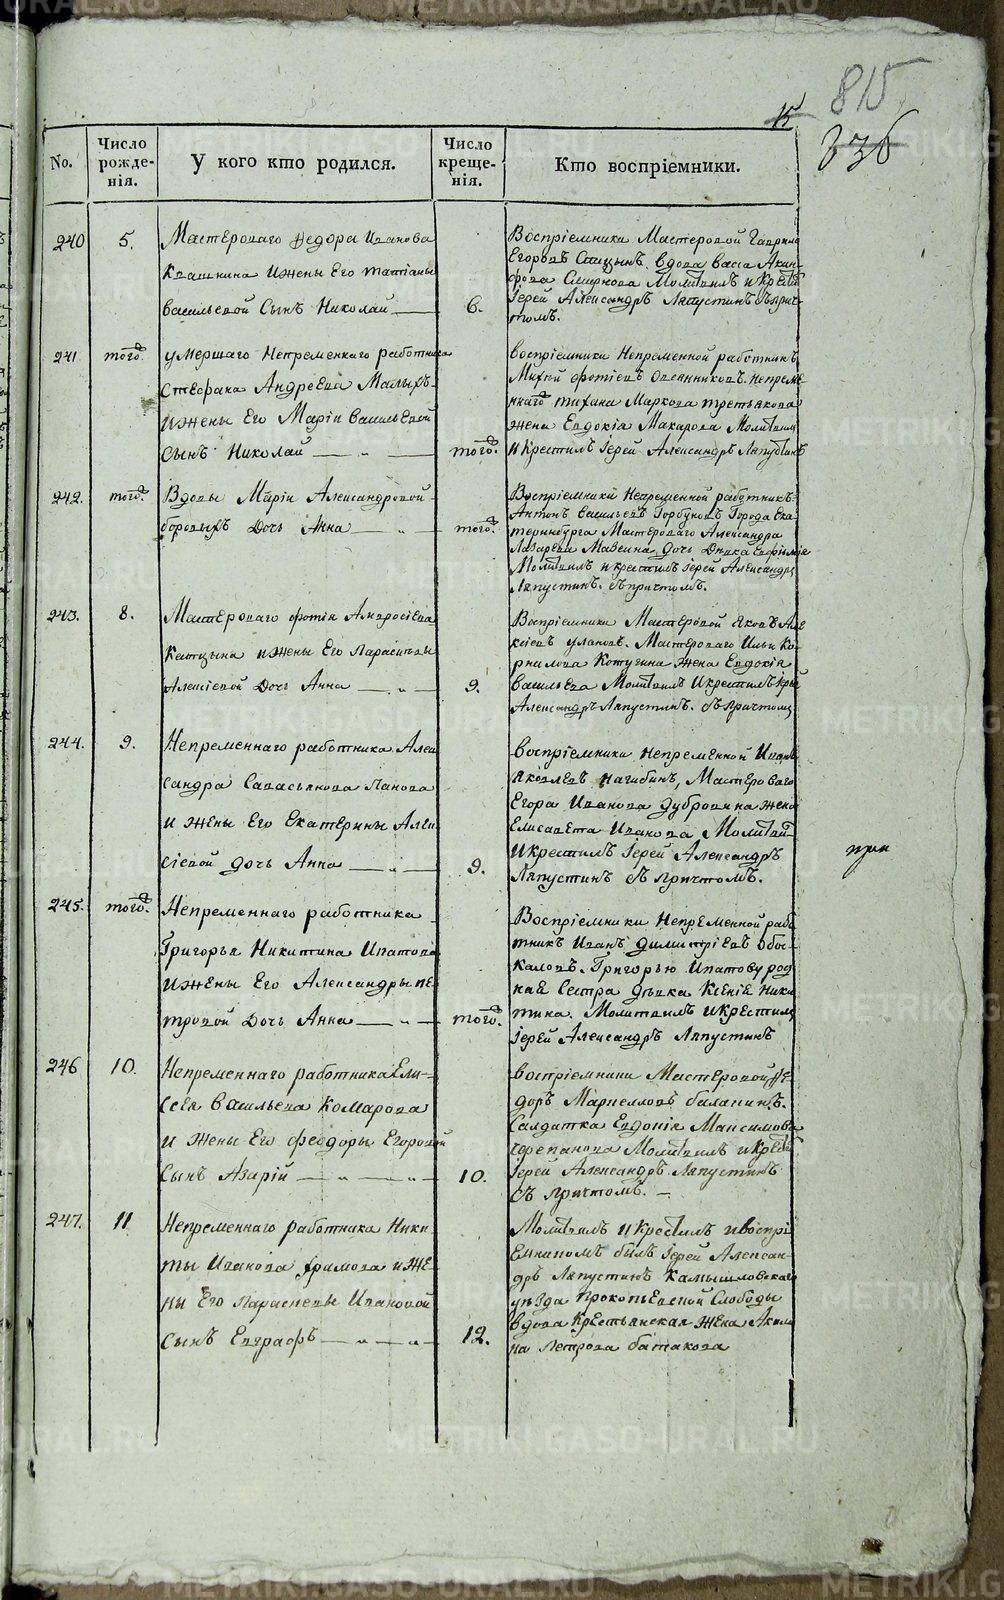 815
15
336
No.
Число рожде-нія.
У кого кто родился.
Число креще-нія.
Кто воспріемники.
240
5.
Мастероваго Федора Иванова
Квашнина и жены Его татіаны
васильевой Сынъ Николай
6.
Воспріемники Мастеровой Гаврило
Егоровъ вдова васса
Смирнова Молитвилъ и Крестил
Іерей Александръ Ляпустинъ съ прич-
томъ.
241
того.
умершаго Непременнаго работника
Стефана Андреева Малыхъ
и жены Его Маріи васильевой
сынъ Николай
того.
воспріемники Непременной работникъ
Михей фотіевъ Овсянниковъ. непреме-
ннаго тихана Маркова третьякова
жена Евдокія Макарова Молитвил
и крестилъ Іерей Александръ Ляпустинъ
242.
того.
Вдовы Маріи Александровой
боровыхъ Дочь Анна
того.
Воспріемники Непременной работникъ
Антонъ васильевъ Горбуновъ Города Ека-
теринбурга Мастероваго Александра
Лазарева Мазеина Дочь Девка
Молитвилъ и крестилъ Іерей Александръ
Ляпустинъ. съ причтомъ.
243.
8.
Мастероваго фотія Амвросіева
Катцына и жены Его Парасковьи
Алексіевой Дочь Анна
9.
Воспріемники Мастеровой Яковъ Але
ксіевъ улановъ. Мастероваго Ильи Ко-
рнилова Котугина жена Евдокія
васильева Молитвилъ и крестилъ Іерей
Александръ Ляпустинъ. съ причтомъ
244.
9.
Непременнаго работника Алек
сандра Савасьянова Панова
и жены Его Екатерины Алек
сіевой дочь Анна
9.
воспріемники непременной Иванъ
Яковлевъ нагибинъ, Мастероваго
Егора Иванова дубровина жена
Елисавета Иванова Молитвил
и крестилъ Іерей Александръ
Ляпустинъ съ причтомъ.
245.
того.
Непременнаго работника
Григорья Никитина Ипатова
и жены Его Александры пе
тровой Дочь Анна
того.
Воспріемники Непременной рабо
тникъ Иванъ димитріевъ Обос-
каловъ. Григорью Ипатову род
ная Сестра девка Ксенія Ники
тина. Молитвилъ и крестилъ
Іерей Александръ Ляпустинъ
246
10.
Непременнаго работника Ели-
сея васильева Комарова
и жены Его феодоры Егоровой
Сынъ Азарій
10.
воспріемники Мастеровой Фе-
доръ Маркелловъ баланинъ.
Салдатка Евдокія Максимова
Черепанова Молитвилъ и Крестил
Іерей Александръ Ляпустинъ
съ причтомъ.
247.
11
Непременнаго работника Ники
ты Иванова Ярмова и же-
ны Его Параскевы Ивановой
Сынъ Евграфъ
12.
Молитвилъ и Крестилъ и воспрі
емникомъ былъ Іерей Александ-
дръ Ляпустинъ Камышловскаго
уезда Прокопьевской Слободы
вдова крестьянская жена Акили
на Петрова батакова
METRIKI.GASO-URAL.RU